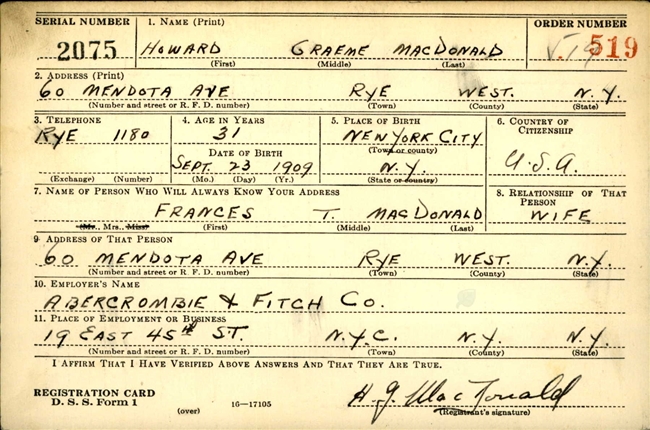 SERIAL NUMBER 1. NAME (Print) ORDER NUMBER
2075 HOWARD GRAEME MACDONALD 519
(First) (Middle) (Last)
2. ADDRESS (Print)
60 MENDOTA AVE RYE WEST. N.Y.
(Number and street or R. F. D. number) (Town) (County) (State)
3. TELEPHONE 4. AGE IN YEARS 5. PLACE OF BIRTH 6. COUNTRY OF CITIZENSHIP
RYE 1180 31 NEW YORK CITY U.S.A.
DATE OF BIRTH (Town or county)
SEPT. 23 1909 N.Y.
(Exchange) (Number) (Mo.) (Day) (Yr.) (State or country)
7. NAME OF PERSON WHO WILL ALWAYS KNOW YOUR ADDRESS 8. RELATIONSHIP OF THAT PERSON
FRANCES T. MACDONALD WIFE
(Mr., Mrs., Miss) (First) (Middle) (Last)
9. ADDRESS OF THAT PERSON
60 MENDOTA AVE RYE WEST. N.Y.
(Number and street or R. F. D. number) (Town) (County) (State)
10. EMPLOYER'S NAME
ABERCROMBIE & FITCH CO.
11. PLACE OF EMPLOYMENT OR BUSINESS
19 EAST 45th ST. N.Y.C. N.Y. N.Y.
(Number and street or R. F. D. number) (Town) (County) (State)
I AFFIRM THAT I HAVE VERIFIED ABOVE ANSWERS AND THAT THEY ARE TRUE.
REGISTRATION CARD H. G. MacDonald
D. S. S. Form 1 (over) 16—17105 (Registrant's signature)